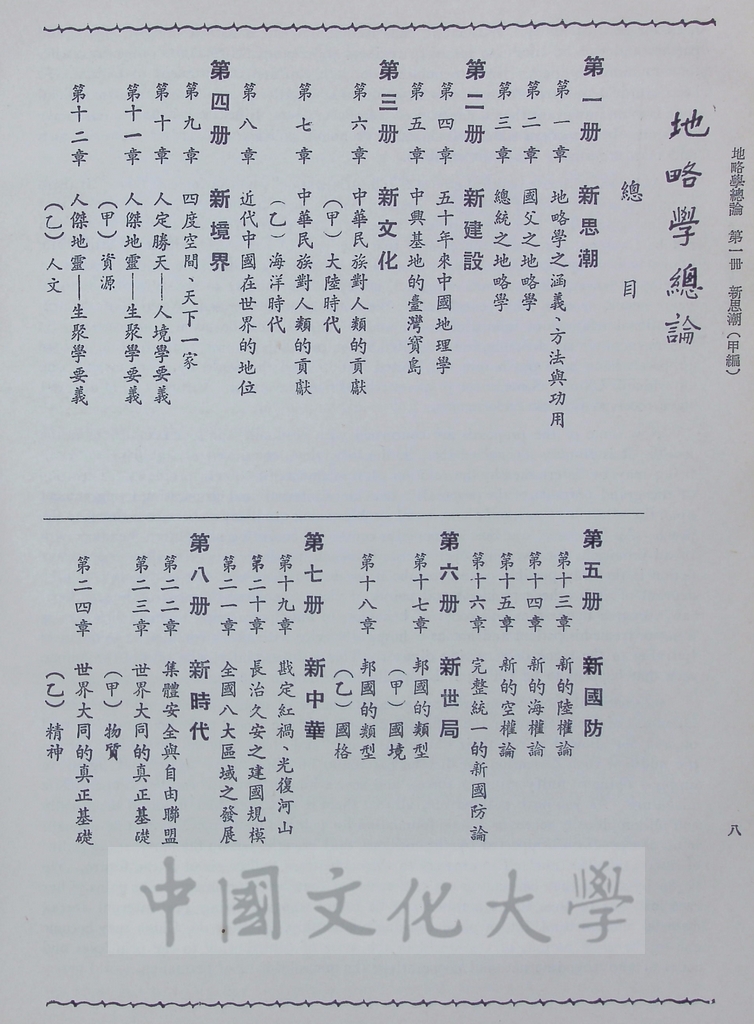 地略學總論　第一冊　新思潮（甲編）
八
地略學總論
總目
第一册　新思潮
第一章　地略學之涵義、方法與功用
第二章　國父之地略學
第三章　總統之地略學
第二册　新建設
第四章　五十年來中國地理學
第五章　中興基地的臺灣寶島
第三册　新文化
第六章　中華民族對人類的貢獻
（甲）大陸時代
第七章　中華民族對人類的貢獻
（乙）海洋時代
第八章　近代中國在世界的地位
第四册　新境界
第九章　四度空間、天下一家
第十章　人定勝天——人境學要義
第十一章　人傑地靈——生聚學要義
（甲）資源
第十二章　人傑地靈——生聚學要義
（乙）人文
第五册　新國防
第十三章　新的陸權論
第十四章　新的海權論
第十五章　新的空權論
第十六章　完整統一的新國防論
第六册　新世局
第十七章　邦國的類型
（甲）國境
第十八章　邦國的類型
（乙）國格
第七册　新中華
第十九章　戡定紅禍、光復河山
第二十章　長治久安之建國規模
第二一章　全國八大區域之發展
第八册　新時代
第二二章　集體安全與自由聯盟
第二三章　世界大同的真正基礎
（甲）物質
第二四章　世界大同的真正基礎
（乙）精神
中國文化大學